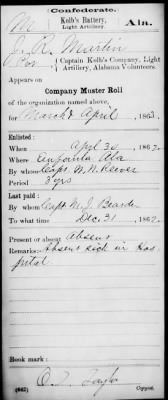 Confederate.
M Kolb's Battery, Light Artillery. Ala.
J. R. Martin
Captain Kolb's Company, Light
Artillery, Alabama Volunteers.
Appears on
Company Muster Roll
of the organization named above,
for March & April, 1863.
Enlisted:
When Apl 30, 1862.
Where Eufaula Ala
By whom Capt. N. N.
Period 3 yrs
Last paid:
By whom Capt. M. J.
To what time Dec. 31, 1862.
Present or absent Absent
Remarks: Absent sick in Hos
pital
Book mark:
O. T. Taylor
(642) Copyist.